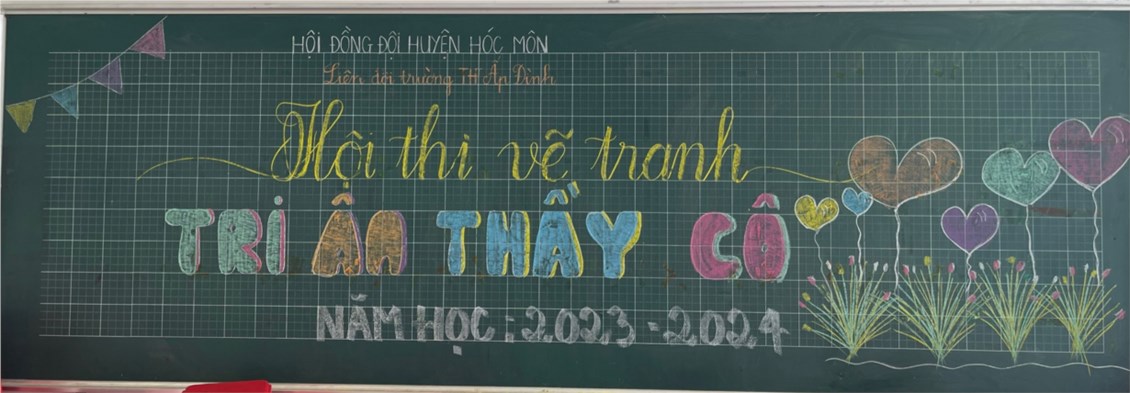 HỘI ĐỒNG ĐỘI HUYỆN HÓC MÔN
Liên đội trường TH Ấp Đình
Hội thi vẽ tranh
TRI ÂN THẦY CÔ
NĂM HỌC : 2023 - 2024